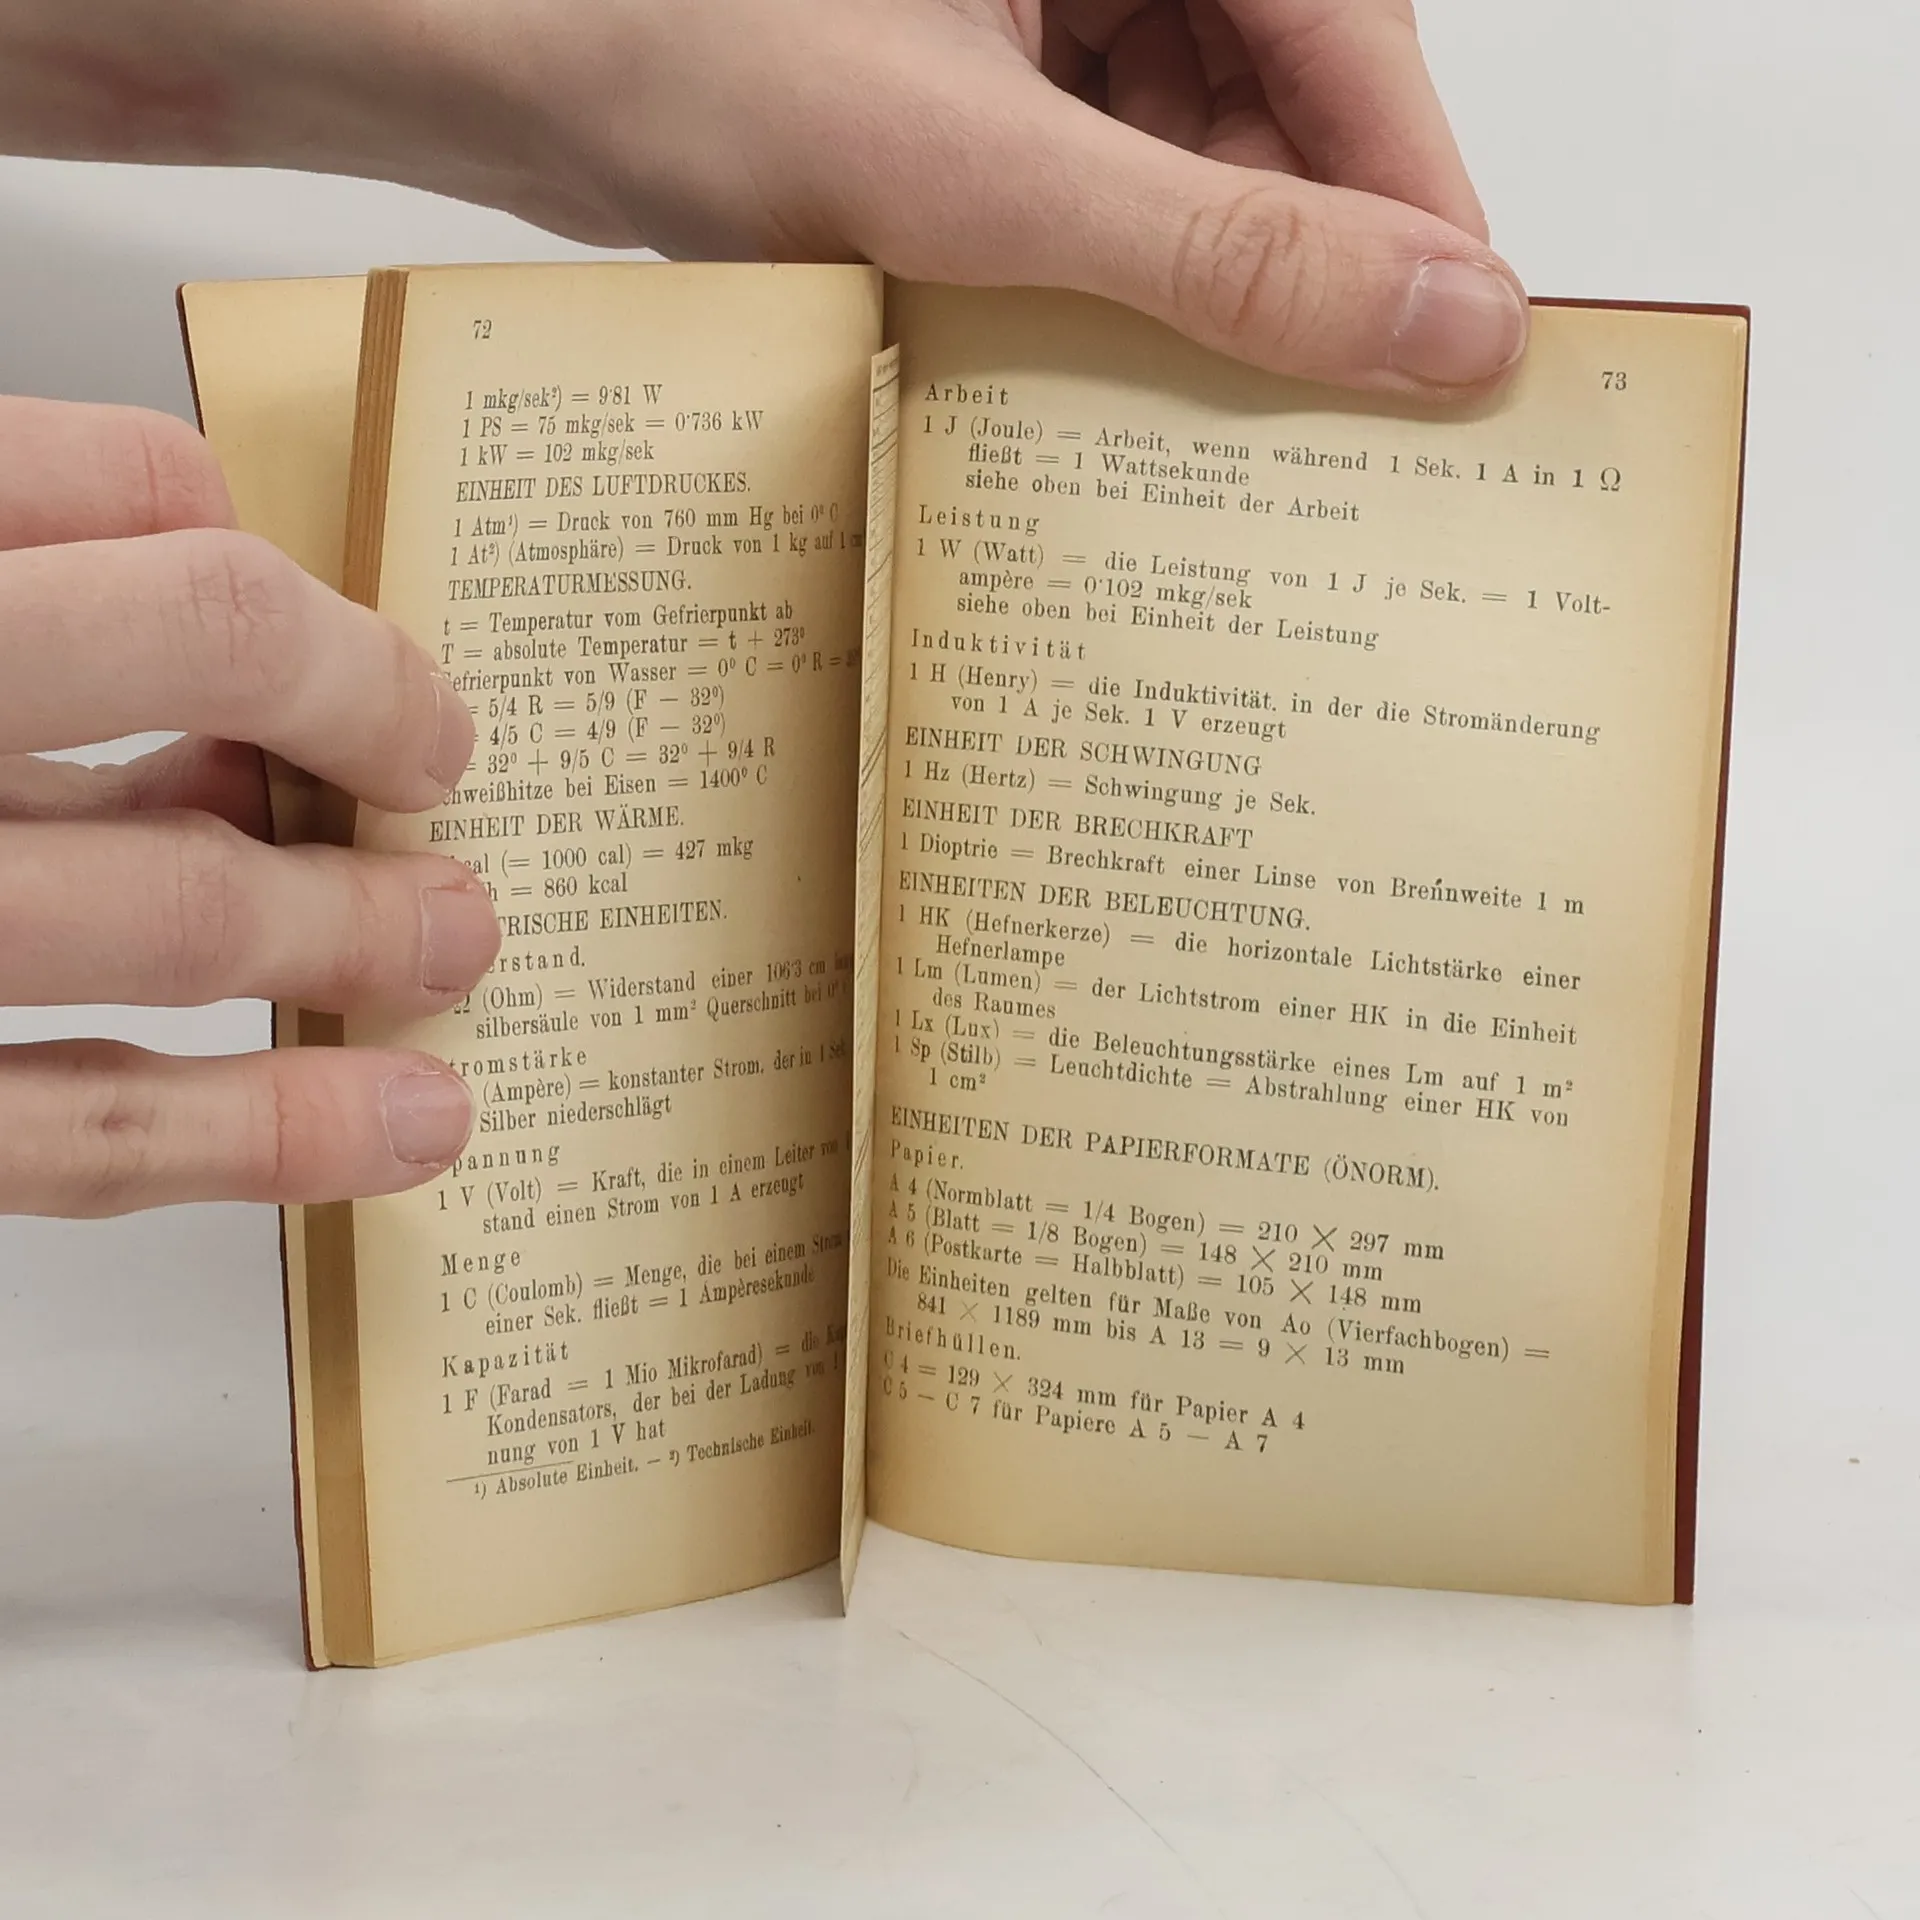 72
1 mkg/sek²) = 9·81 W
1 PS = 75 mkg/sek = 0·736 kW
1 kW = 102 mkg/sek
EINHEIT DES LUFTDRUCKES.
1 Atm¹) = Druck von 760 mm Hg bei 0⁰ C
1 At²) (Atmosphäre) = Druck von 1 kg auf 1
TEMPERATURMESSUNG.
t = Temperatur vom Gefrierpunkt ab
T = absolute Temperatur = t + 273⁰
efrierpunkt von Wasser = 0⁰ C = 0⁰ R =
= 5/4 R = 5/9 (F — 32⁰)
4/5 C = 4/9 (F — 32⁰)
= 32⁰ + 9/5 C = 32⁰ + 9/4 R
hweißhitze bei Eisen = 1400⁰ C
EINHEIT DER WÄRME.
cal (= 1000 cal) = 427 mkg
h = 860 kcal
TRISCHE EINHEITEN.
rstand.
Ω (Ohm) = Widerstand einer 106·3 cm
silbersäule von 1 mm² Querschnitt bei 0⁰
tromstärke
(Ampère) = konstanter Strom, der in 1 Sek
Silber niederschlägt
pannung
1 V (Volt) = Kraft, die in einem Leiter von
stand einen Strom von 1 A erzeugt
Menge
1 C (Coulomb) = Menge, die bei einem Strom
einer Sek. fließt = 1 Ampèresekunde
Kapazität
1 F (Farad = 1 Mio Mikrofarad) = die
Kondensators, der bei der Ladung von 1
nung von 1 V hat
¹) Absolute Einheit. — ²) Technische Einheit.
73
Arbeit
1 J (Joule) = Arbeit, wenn während 1 Sek. 1 A in 1 Ω
fließt = 1 Wattsekunde
siehe oben bei Einheit der Arbeit
Leistung
1 W (Watt) = die Leistung von 1 J je Sek. = 1 Volt-
ampère = 0·102 mkg/sek
siehe oben bei Einheit der Leistung
Induktivität
1 H (Henry) = die Induktivität. in der die Stromänderung
von 1 A je Sek. 1 V erzeugt
EINHEIT DER SCHWINGUNG
1 Hz (Hertz) = Schwingung je Sek.
EINHEIT DER BRECHKRAFT
1 Dioptrie = Brechkraft einer Linse von Brennweite 1 m
EINHEITEN DER BELEUCHTUNG.
1 HK (Hefnerkerze) = die horizontale Lichtstärke einer
Hefnerlampe
1 Lm (Lumen) = der Lichtstrom einer HK in die Einheit
des Raumes
1 Lx (Lux) = die Beleuchtungsstärke eines Lm auf 1 m²
1 Sp (Stilb) = Leuchtdichte = Abstrahlung einer HK von
1 cm²
EINHEITEN DER PAPIERFORMATE (ÖNORM).
Papier.
A 4 (Normblatt = 1/4 Bogen) = 210 × 297 mm
A 5 (Blatt = 1/8 Bogen) = 148 × 210 mm
A 6 (Postkarte = Halbblatt) = 105 × 148 mm
Die Einheiten gelten für Maße von Ao (Vierfachbogen) =
841 × 1189 mm bis A 13 = 9 × 13 mm
Briefhüllen.
C 4 = 129 × 324 mm für Papier A 4
C 5 — C 7 für Papiere A 5 — A 7